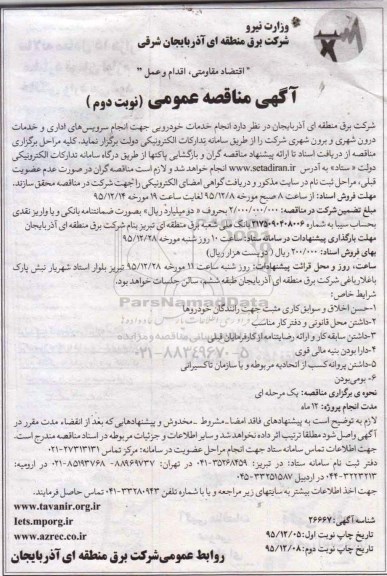 وزارت نیرو
شرکت برق منطقه ای آذربایجان شرقی
"اقتصاد مقاومتی، اقدام و عمل"
آگهی مناقصه عمومی (نوبت دوم)
شرکت برق منطقه ای آذربایجان در نظر دارد انجام خدمات خودرویی جهت انجام سرویس‌های اداری و خدمات
درون شهری و برون شهری شرکت را از طریق سامانه تدارکات الکترونیکی دولت برگزار نماید. کلیه مراحل برگزاری
مناقصه از دریافت اسناد تا ارائه پیشنهاد مناقصه گران و بازگشایی پاکتها از طریق درگاه سامانه تدارکات الکترونیکی
دولت « ستاد» به آدرس www.setadiran.ir انجام خواهد شد و لازم است مناقصه گران در صورت عدم عضویت
قبلی ، مراحل ثبت نام در سایت مذکور و دریافت گواهی امضای الکترونیکی را جهت شرکت در مناقصه محقق سازند.
مهلت فروش اسناد: از ساعت ۸ صبح مورخه ۹۵/۱۲/۸ لغایت ساعت ۱۹ مورخه ۹۵/۱۲/۱۴
مبلغ تضمین شرکت در مناقصه: ۲/۰۰۰/۰۰۰/۰۰۰ بحروف « دو میلیارد» ریال- بصورت ضمانتنامه بانکی و یا واریز نقدی
بحساب سیبا به شماره ۲۱۷۵۰۹۰۴۰۸۰۰۶ بانک ملی شعبه برق منطقه ای تبریز بنام شرکت برق منطقه ای آذربایجان
مهلت بارگذاری پیشنهادات در سامانه ستاد: ساعت ۱۰ روز شنبه مورخه ۹۵/۱۲/۲۸
بهای فروش اسناد: ۲۰۰/۰۰۰ ریال (دویست هزار ریال)
ساعت، روز و محل قرائت پیشنهادات: روز شنبه ساعت ۱۱ مورخه ۹۵/۱۲/۲۸ تبریز بلوار استاد شهریار نبش پارک
باغلارباغی شرکت برق منطقه ای آذربایجان طبقه ششم، سالن جلسات خواهد بود.
شرایط خاص:
۱-حسن اخلاق و سوابق کاری مثبت جهت رانندگان خودروها
۲-داشتن محل قانونی و دفتر کار مناسب
۳-داشتن سابقه کار و ارائه رضایتنامه از کارفرمایان قبلی
۴-دارا بودن بنیه مالی قوی
۵-داشتن پروانه کسب از اتحادیه مربوطه و یا سازمان تاکسیرانی
۶- بومی بودن
نحوه ی برگزاری مناقصه: یک مرحله ای
مدت انجام پروژه: ۱۲ ماه
لازم به توضیح است به پیشنهادهای فاقد امضاء، مشروط ، مخدوش و پیشنهادهایی که بعد از انقضاء مدت مقرر در
آگهی واصل شود مطلقا ترتیب اثر داده نخواهد شد و سایر اطلاعات و جزئیات مربوطه در اسناد مناقصه مندرج است.
جهت اطلاعات تماس سامانه ستاد جهت انجام مراحل عضویت در سامانه: مرکز تماس: ۲۷۳۱۳۱۳۱-۰۲۱
دفتر ثبت نام سامانه ستاد: در تبریز: ۳۵۲۶۸۴۵۹-۰۴۱ در تهران: ۸۸۹۶۹۷۳۷- ۸۵۱۹۳۷۶۸-۰۲۱ در ارومیه:
۳۲۲۳۲۱۳-۰۴۴ در اردبیل ۳۳۲۵۱۵۸۷-۰۴۵
جهت اخذ اطلاعات بیشتر به سایتهای زیر مراجعه و یا با شماره تلفن ۳۳۲۸۰۹۴۳-۰۴۱ تماس حاصل فرمایند.
www.tavanir.org.ir
Iets.mporg.ir
شناسه آگهی: ۲۶۶۶۷
www.azrec.co.ir
تاریخ چاپ نوبت اول: ۹۵/۱۲/۰۵
تاریخ چاپ نوبت دوم: ۹۵/۱۲/۰۸
روابط عمومی شرکت برق منطقه ای آذربایجان
ParsNamadData
۰۲۱-۸۸۳۴۹۶۷۰-۵